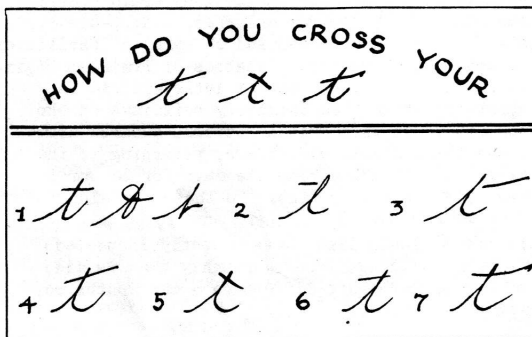 HOW DO YOU CROSS YOUR
t t t
1 t t t 2 t 3 t
4 t 5 t 6 t 7 t